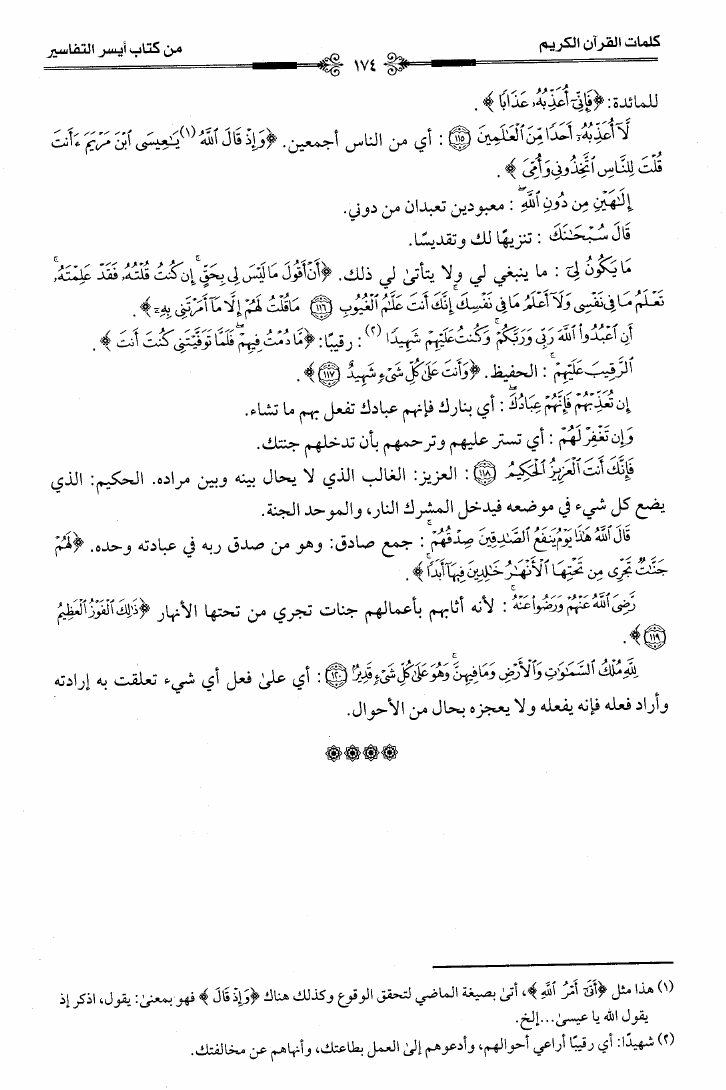 كلمات القرآن الكريم
١٧٤
من كتاب أيسر التفاسير
للمائدة: ﴿فَإِنِّيٓ أُعَذِّبُهُۥ عَذَابًا﴾.
لَّآ أُعَذِّبُهُۥٓ أَحَدًا مِّنَ ٱلْعَـٰلَمِينَ ﴿١١٥﴾ : أي من الناس أجمعين. ﴿وَإِذْ قَالَ ٱللَّهُ (١) يَـٰعِيسَى ٱبْنَ مَرْيَمَ ءَأَنتَ
قُلْتَ لِلنَّاسِ ٱتَّخِذُونِي وَأُمِّيَ﴾.
إِلَـٰهَيْنِ مِن دُونِ ٱللَّهِۖ : معبودين تعبدان من دوني.
قَالَ سُبْحَـٰنَكَ : تنزيهًا لك وتقديسًا.
مَا يَكُونُ لِيٓ : ما ينبغي لي ولا يتأتىٰ لي ذلك. ﴿أَنْ أَقُولَ مَا لَيْسَ لِي بِحَقٍّۚ إِن كُنتُ قُلْتُهُۥ فَقَدْ عَلِمْتَهُۥۚ
تَعْلَمُ مَا فِي نَفْسِي وَلَآ أَعْلَمُ مَا فِي نَفْسِكَۚ إِنَّكَ أَنتَ عَلَّـٰمُ ٱلْغُيُوبِ ﴿١١٦﴾ مَا قُلْتُ لَهُمْ إِلَّا مَآ أَمَرْتَنِي بِهِۦٓ﴾.
أَنِ ٱعْبُدُوا۟ ٱللَّهَ رَبِّي وَرَبَّكُمْۚ وَكُنتُ عَلَيْهِمْ شَهِيدًا (٢) : رقيبًا: ﴿مَّا دُمْتُ فِيهِمْۖ فَلَمَّا تَوَفَّيْتَنِي كُنتَ أَنتَ﴾.
ٱلرَّقِيبَ عَلَيْهِمْۚ : الحفيظ. ﴿وَأَنتَ عَلَىٰ كُلِّ شَيْءٍ شَهِيدٌ ﴿١١٧﴾﴾.
إِن تُعَذِّبْهُمْ فَإِنَّهُمْ عِبَادُكَۖ : أي بنارك فإنهم عبادك تفعل بهم ما تشاء.
وَإِن تَغْفِرْ لَهُمْ : أي تستر عليهم وترحمهم بأن تدخلهم جنتك.
فَإِنَّكَ أَنتَ ٱلْعَزِيزُ ٱلْحَكِيمُ ﴿١١٨﴾ : العزيز: الغالب الذي لا يحال بينه وبين مراده. الحكيم: الذي
يضع كل شيء في موضعه فيدخل المشرك النار، والموحد الجنة.
قَالَ ٱللَّهُ هَـٰذَا يَوْمُ يَنفَعُ ٱلصَّـٰدِقِينَ صِدْقُهُمْۚ : جمع صادق: وهو من صدق ربه في عبادته وحده. ﴿لَهُمْ
جَنَّـٰتٌ تَجْرِي مِن تَحْتِهَا ٱلْأَنْهَـٰرُ خَـٰلِدِينَ فِيهَآ أَبَدًاۚ﴾.
رَّضِيَ ٱللَّهُ عَنْهُمْ وَرَضُوا۟ عَنْهُۚ : لأنه أثابهم بأعمالهم جنات تجري من تحتها الأنهار ﴿ذَٰلِكَ ٱلْفَوْزُ ٱلْعَظِيمُ
﴿١١٩﴾﴾.
لِلَّهِ مُلْكُ ٱلسَّمَـٰوَٰتِ وَٱلْأَرْضِ وَمَا فِيهِنَّۚ وَهُوَ عَلَىٰ كُلِّ شَيْءٍ قَدِيرٌ ﴿١٢٠﴾ : أي علىٰ فعل أي شيء تعلقت به إرادته
وأراد فعله فإنه يفعله ولا يعجزه بحال من الأحوال.
(١) هذا مثل ﴿أَتَىٰٓ أَمْرُ ٱللَّهِ﴾، أتىٰ بصيغة الماضي لتحقق الوقوع وكذلك هناك ﴿وَإِذْ قَالَ﴾ فهو بمعنىٰ: يقول، اذكر إذ
يقول الله يا عيسىٰ...إلخ.
(٢) شهيدًا: أي رقيبًا أراعي أحوالهم، وأدعوهم إلىٰ العمل بطاعتك، وأنهاهم عن مخالفتك.